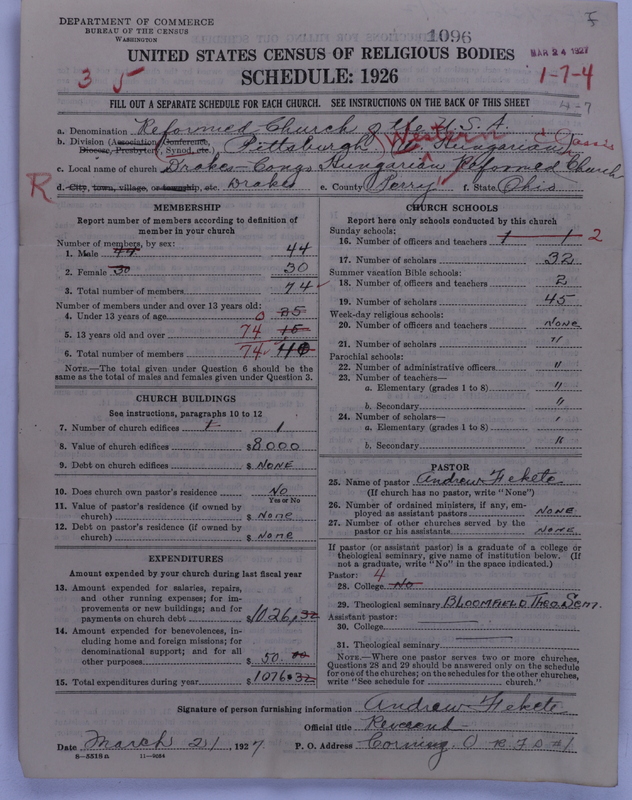 DEPARTMENT OF COMMERCE
BUREAU OF THE CENSUS
WASHINGTON
1096
UNITED STATES CENSUS OF RELIGIOUS BODIES
MAR 24 1927
SCHEDULE: 1926
3 5
1-7-4
FILL OUT A SEPARATE SCHEDULE FOR EACH CHURCH. SEE INSTRUCTIONS ON THE BACK OF THIS SHEET
4-7
a. Denomination Reformed Church of the U.S.A.
b. Division (Association, Conference, Diocese, Presbytery, Synod, etc.) Pittsburgh Western Hungarian Classis
c. Local name of church Drakes-Congo Hungarian Reformed Church
R
d. City, town, village, or township, etc. Drakes e. County Perry f. State Ohio
MEMBERSHIP
Report number of members according to definition of
member in your church
Number of members, by sex:
1. Male 44 44
2. Female 30 30
3. Total number of members 74
Number of members under and over 13 years old:
4. Under 13 years of age 0 25
5. 13 years old and over 74 15
6. Total number of members 74 40
NOTE.—The total given under Question 6 should be the
same as the total of males and females given under Question 3.
CHURCH BUILDINGS
See instructions, paragraphs 10 to 12
7. Number of church edifices 1 1
8. Value of church edifices $8000
9. Debt on church edifices $ NONE
10. Does church own pastor's residence No
Yes or No
11. Value of pastor's residence (if owned by
church) $ None
12. Debt on pastor's residence (if owned by
church) $ None
EXPENDITURES
Amount expended by your church during last fiscal year
13. Amount expended for salaries, repairs,
and other running expenses; for im-
provements or new buildings; and for
payments on church debt $1026.32
14. Amount expended for benevolences, in-
cluding home and foreign missions; for
denominational support; and for all
other purposes $ 50.
15. Total expenditures during year $ 1076.32
CHURCH SCHOOLS
Report here only schools conducted by this church
Sunday schools:
16. Number of officers and teachers 1 1 2
17. Number of scholars 32
Summer vacation Bible schools:
18. Number of officers and teachers 2
19. Number of scholars 45
Week-day religious schools:
20. Number of officers and teachers NONE
21. Number of scholars "
Parochial schools:
22. Number of administrative officers "
23. Number of teachers—
a. Elementary (grades 1 to 8) "
b. Secondary "
24. Number of scholars—
a. Elementary (grades 1 to 8) "
b. Secondary "
PASTOR
25. Name of pastor Andrew Fekete
(If church has no pastor, write "None")
26. Number of ordained ministers, if any, em-
ployed as assistant pastors NONE
27. Number of other churches served by the
pastor or his assistants NONE
If pastor (or assistant pastor) is a graduate of a college or
theological seminary, give name of institution below. (If
not a graduate, write "No" in the space indicated.)
Pastor: 4
28. College No
29. Theological seminary BLOOMFIELD. Theo. Sem.
Assistant pastor:
30. College
31. Theological seminary
NOTE.—Where one pastor serves two or more churches,
Questions 28 and 29 should be answered only on the schedule
for one of the churches; on the schedules for the other churches,
write "See schedule for church."
Signature of person furnishing information Andrew Fekete
Official title Reverend
Date March 21, 1927 P. O. Address Corning, O R F D #1
8—5518a 11—9084